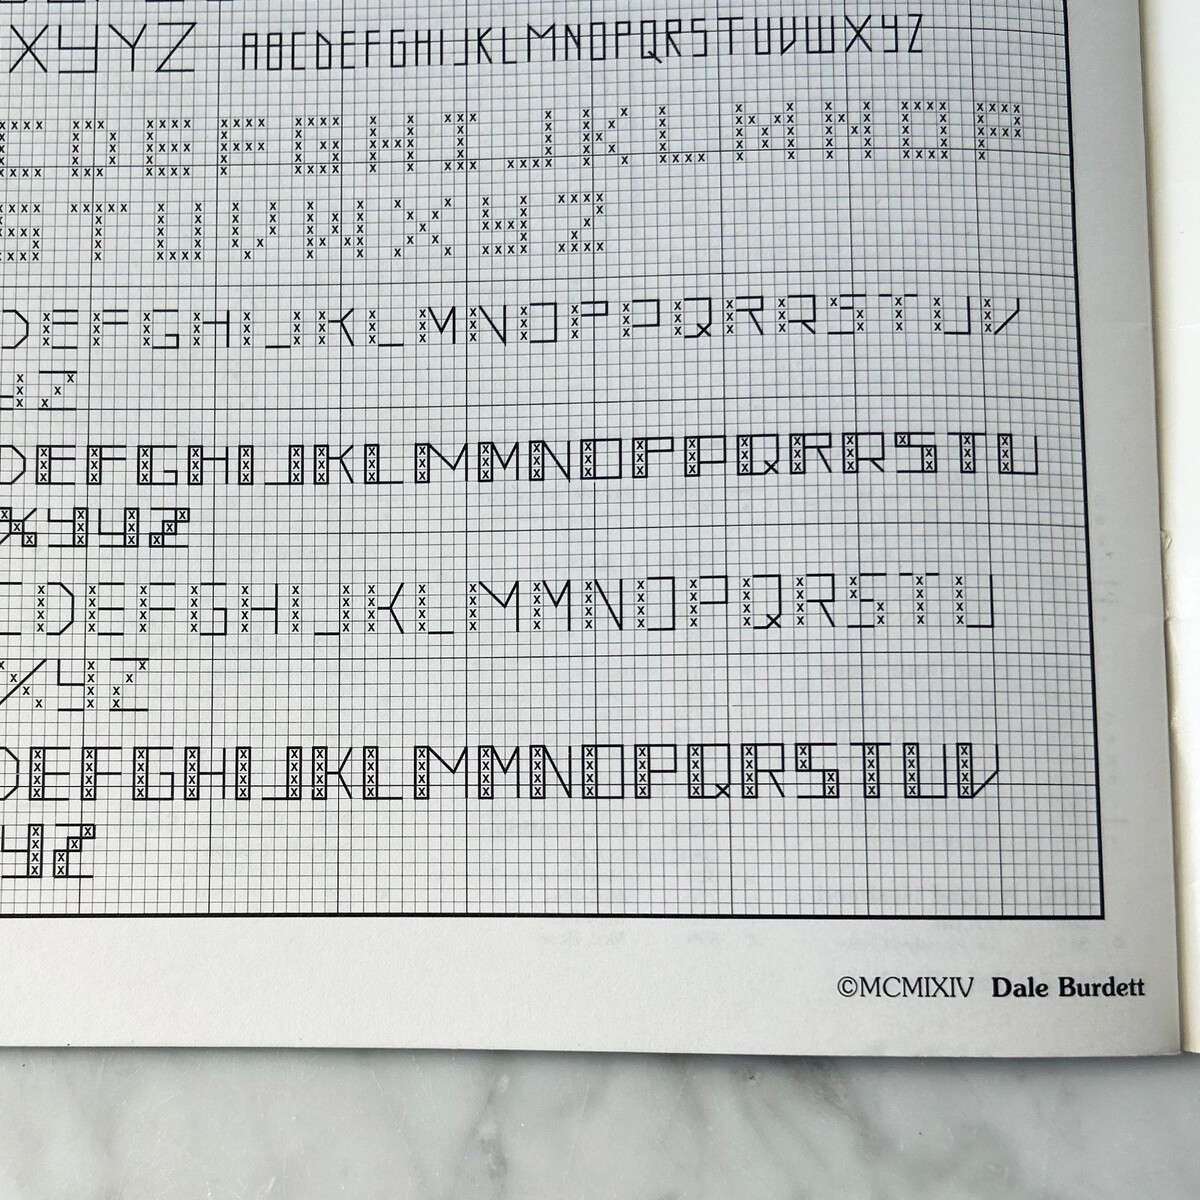 XYYZ ABCDEFGHIJKLMNOPQRSTUVWXYZ
CDEFGHIJKLMNOP
STUVWXYZ
DEFGHIJKLMNOPPQRRSTUV
YZ
DEFGHIJKLMMNOPPQRRSTU
XYYZ
CDEFGHIJKLMMNOPQRSTU
XYZ
DEFGHIJKLMMNOPQRSTUV
YZ
©MCMIXIV Dale Burdett